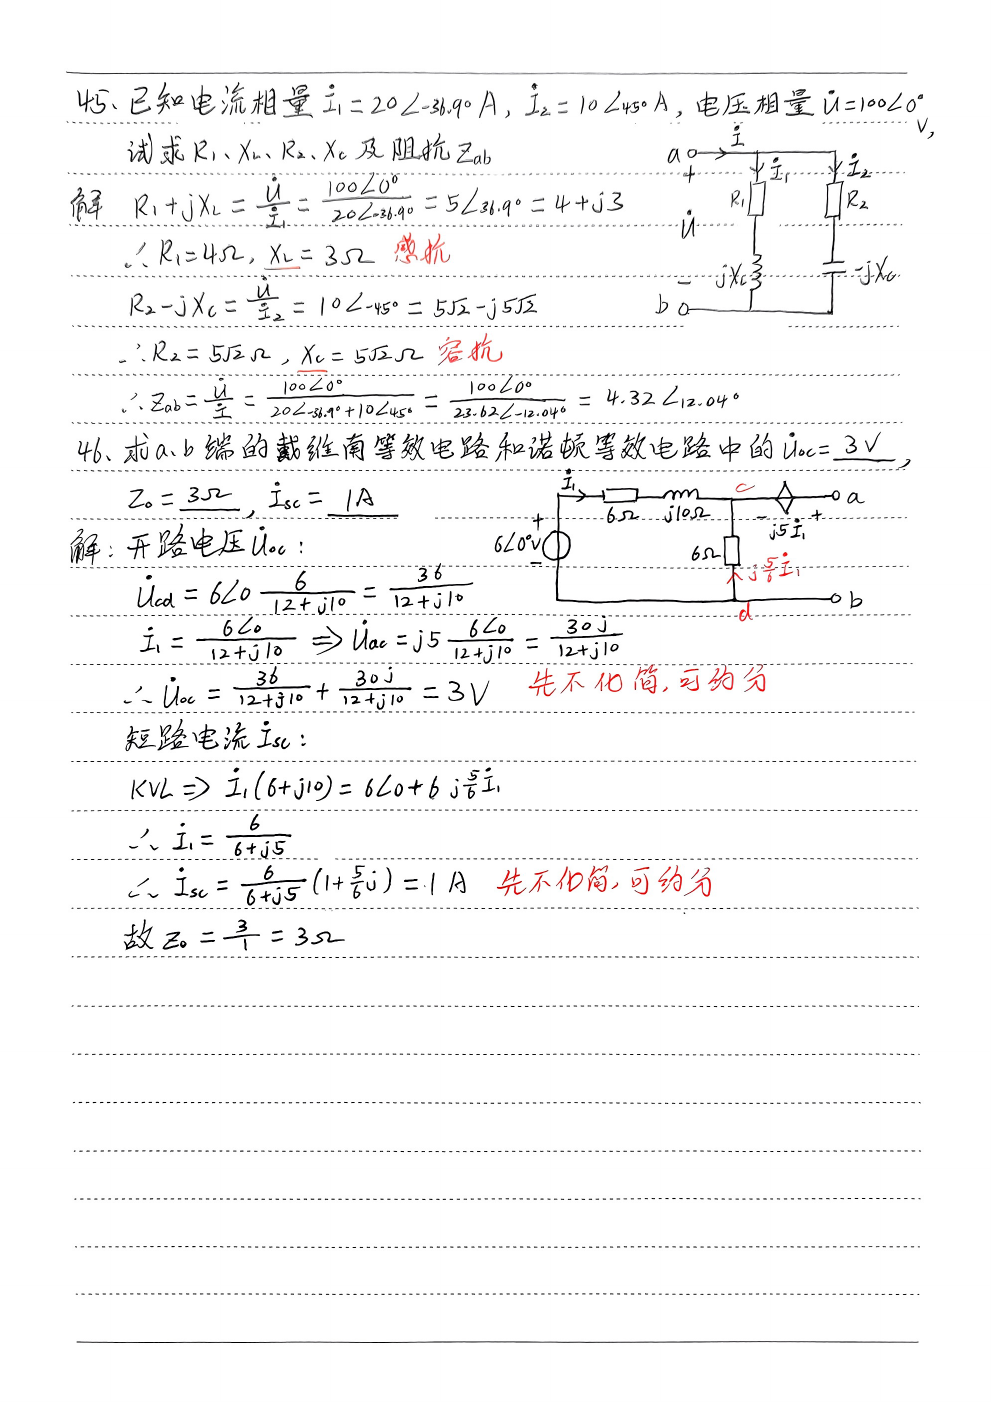 45、已知电流相量 İ₁=20∠-36.9° A, İ₂=10∠45° A, 电压相量 U̇=100∠0° V,
试求 R₁、X_L、R₂、X_C 及阻抗 Z_ab
a İ
+ İ₁ İ₂
R₁ R₂
U̇
- jX_C -jX_C
b
解 R₁+jX_L = U̇/İ₁ = 100∠0°/20∠-36.9° = 5∠36.9° = 4+j3
∴ R₁=4Ω, X_L=3Ω 感抗
R₂-jX_C = U̇/İ₂ = 10∠-45° = 5√2-j5√2
∴ R₂=5√2Ω, X_C=5√2Ω 容抗
∴ Z_ab = U̇/İ = 100∠0°/(20∠-36.9°+10∠45°) = 100∠0°/23.62∠-12.04° = 4.32∠12.04°
46、求a、b端的戴维南等效电路和诺顿等效电路中的 U̇oc= 3V ,
Z₀= 3Ω , İsc= 1A
İ₁ c a
6Ω j10Ω - j5İ₁ +
+ 6∠0°V - 6Ω
j5/6 İ₁
d b
解: 开路电压 U̇oc:
U̇cd = 6∠0 6/(12+j10) = 36/(12+j10)
İ₁ = 6∠0/(12+j10) ⇒ U̇ac = j5 6∠0/(12+j10) = 30j/(12+j10)
∴ U̇oc = 36/(12+j10) + 30j/(12+j10) = 3V 先不化简,可约分
短路电流 İsc:
KVL ⇒ İ₁(6+j10) = 6∠0+6 j5/6 İ₁
∴ İ₁ = 6/(6+j5)
∴ İsc = 6/(6+j5) (1+5/6 j) = 1 A 先不化简,可约分
故 Z₀ = 3/1 = 3Ω